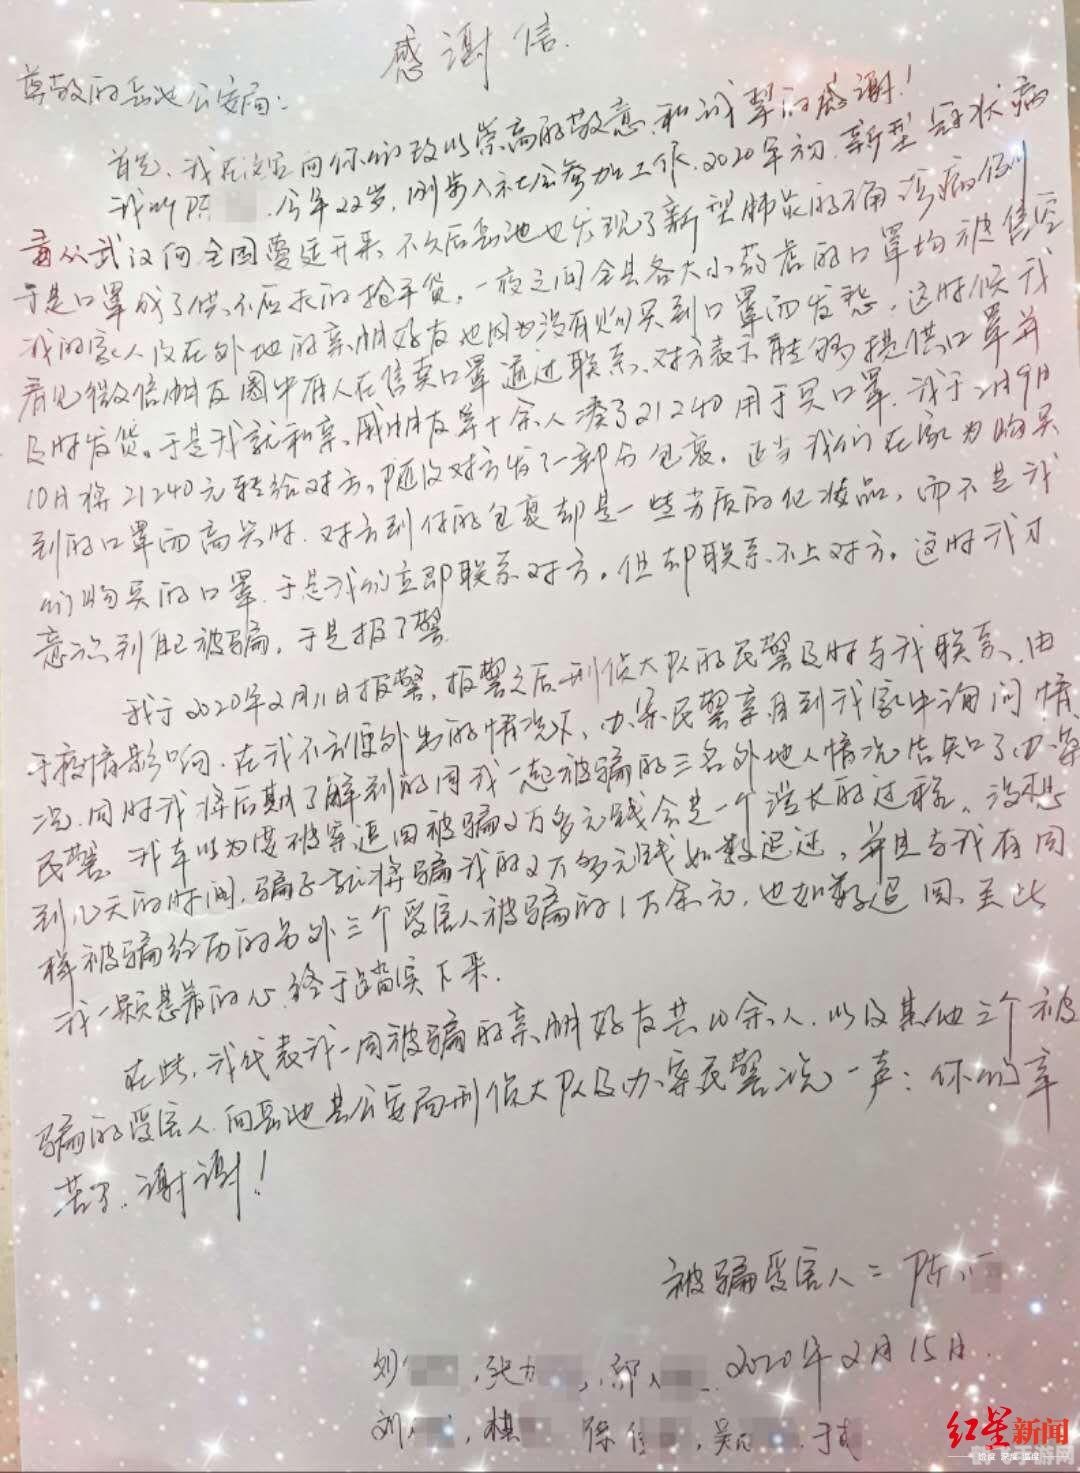 感谢信.
尊敬的岳池公安局:
首先,我在这里向你们致以崇高的敬意,和诚挚的感谢!
我叫陈 ,今年22岁,刚步入社会参加工作.2020年初,新型冠状病
毒从武汉向全国蔓延开来,不久后岳池也发现了新型肺炎的确诊病例
于是口罩成了供不应求的抢手货,一夜之间全县各大小药店的口罩均被售空
我的家人及在外地的亲朋好友也因为没有购买到口罩而发愁,这时候我
看见微信朋友圈中有人在售卖口罩通过联系,对方表示能够提供口罩并
及时发货。于是我就和亲戚朋友等十余人凑了21240用于买口罩,我于2月9日
10日将21240元转给对方,随后对方发了一部分包裹。正当我们在家为购买
到的口罩而高兴时,对方到付的包裹却是一些劣质的化妆品,而不是我
们购买的口罩,于是我们立即联系对方,但却联系不上对方。这时我才
意识到自己被骗,于是报了警.
我于2020年2月11日报警,报警之后刑侦大队的民警及时与我联系,由
于疫情影响,在我不方便外出的情况下,办案民警亲自到我家中询问情
况,同时我将后期了解到的同我一起被骗的三名外地人情况告知了办案
民警,我本以为侦破案追回被骗2万多元钱会是一个漫长的过程,没想
到几天的时间,骗子就将骗我的2万多元钱如数退还,并且与我有同
样被骗经历的另外三个受害人被骗的1万余元,也如数追回,至此
我一颗悬着的心,终于踏实下来.
在此,我代表我一同被骗的亲朋好友共10余人,以及其他三个被
骗的受害人,向岳池县公安局刑侦大队及办案民警说一声:你们辛
苦了,谢谢!
被骗受害人:陈
刘 ,张 ,邹 2020年2月15日.
刘 , 徐 ,吴 ,于
红星新闻
锐度 深度 温度